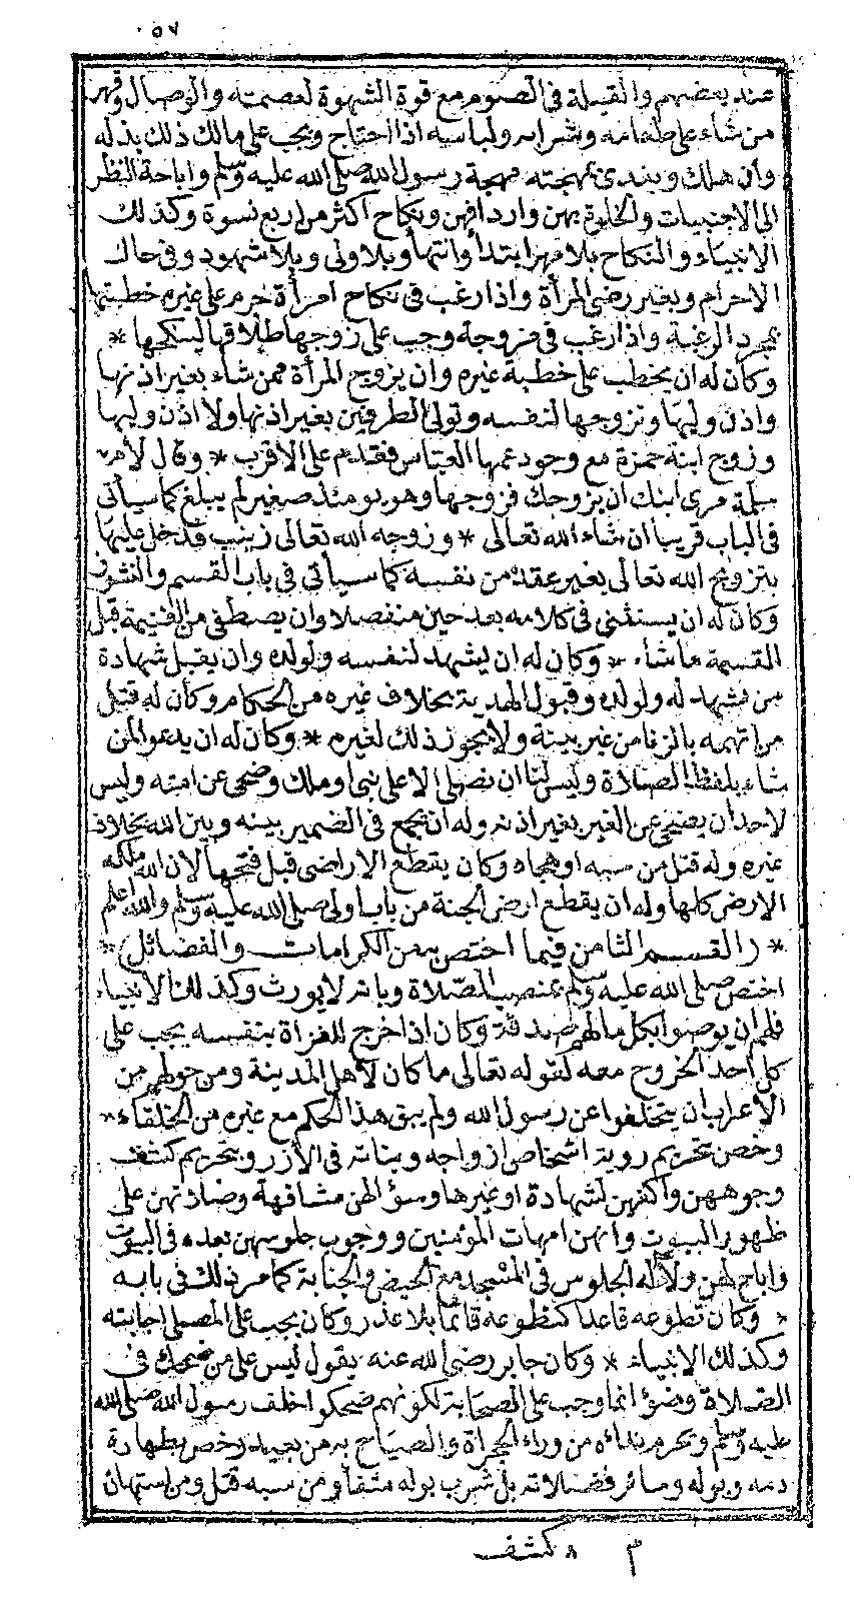 ٥٧
عند بعضهم والقبلة في الصوم مع قوة الشهوة لعصمته والوصال وقهر
من شاء على طعامه وشرابه ولباسه اذا احتاج ويجب على مالك ذلك بذله
وان هلك ويفدى بمهجته مهجة رسول الله صلى الله عليه وسلم واباحة النظر
الى الاجنبيات والخلوة بهن واردافهن ونكاح اكثر من اربع نسوة وكذلك
الانبياء والنكاح بلا مهر ابتداً وانتهاً وبلا ولى وبلا شهود وفي حال
الاحرام وبغير رضى المرأة واذا رغب في نكاح امرأة حرم على غيره خطبتها
بمجرد الرغبة واذا رغب في مزوجة وجب على زوجها طلاقها لينكحها *
وكان له ان يخطب على خطبة غيره وان يزوج المرأة ممن شاء بغير اذنها
واذن وليها وتزوجها لنفسه وتولى الطرفين بغير اذنها ولا اذن وليها
وزوج ابنة حمزة مع وجود عمها العباس فقدم على الاقرب * وقال لأم
سلمة مرى ابنك ان يزوجك فزوجها وهو يومئذ صغير لم يبلغ كما سيأتى
في الباب قريبا ان شاء الله تعالى * وزوجه الله تعالى زينب فدخل عليها
بتزويج الله تعالى بغير عقد من نفسه كما سيأتى في باب القسم والنشوز
وكان له ان يستثنى في كلامه بعد حين منفصلا وان يصطفى من الغنيمة قبل
القسمة ما شاء * وكان له ان يشهد لنفسه ولولده وان يقبل شهادة
من يشهد له ولولده وقبول الهدية بخلاف غيره من الحكام وكان له قتل
من اتهمه بالزنا من غير بينة ولا يجوز ذلك لغيره * وكان له ان يدعو لمن
شاء بلفظ الصلاة وليس لنا ان نصلى الا على نبى او ملك وضحى عن امته وليس
لاحد ان يضحى عن الغير بغير اذنه وله ان يجمع في الضمير بينه وبين الله بخلاف
غيره وله قتل من سبه او هجاه وكان يقطع الاراضى قبل فتحها لان الله ملكه
الارض كلها وله ان يقطع ارض الجنة من باب اولى صلى الله عليه وسلم والله اعلم
* (القسم الثامن فيما اختص به من الكرامات والفضائل) *
اختص صلى الله عليه وسلم بمنصب الصلاة وبانه لا يورث وكذلك الانبياء
فلهم ان يوصوا بكل مالهم صدقة وكان اذا خرج للغزاة بنفسه يجب على
كل احد الخروج معه لقوله تعالى ما كان لأهل المدينة ومن حولهم من
الأعراب ان يتخلفوا عن رسول الله ولم يبق هذا الحكم مع غيره من الخلفاء *
وخص بتحريم روية اشخاص ازواجه وبناته في الأزر وبتحريم كشف
وجوههن واكفهن لشهادة او غيرها وسؤالهن مشافهة وصلاتهن على
ظهور البيوت وانهن امهات المؤمنين ووجوب جلوسهن بعده في البيوت
واباح لهن ولآله الجلوس في المسجد مع الحيض والجنابة كما مر ذلك في بابه
* وكان تطوعه قاعدا كتطوعه قائما بلا عذر وكان يجب على المصلى اجابته
وكذلك الانبياء * وكان جابر رضى الله عنه يقول ليس على من ضحك في
الصلاة وضؤ انما وجب على الصحابة لكونهم ضحكوا خلف رسول الله صلى الله
عليه وسلم ويحرم نداءه من وراء الحجراة والصياح به من بعيد وخص بطهارة
دمه وبوله وسائر فضلاته بل شرب بوله شفأ ومن سبه قتل ومن استهان
٣ ٨ كشف